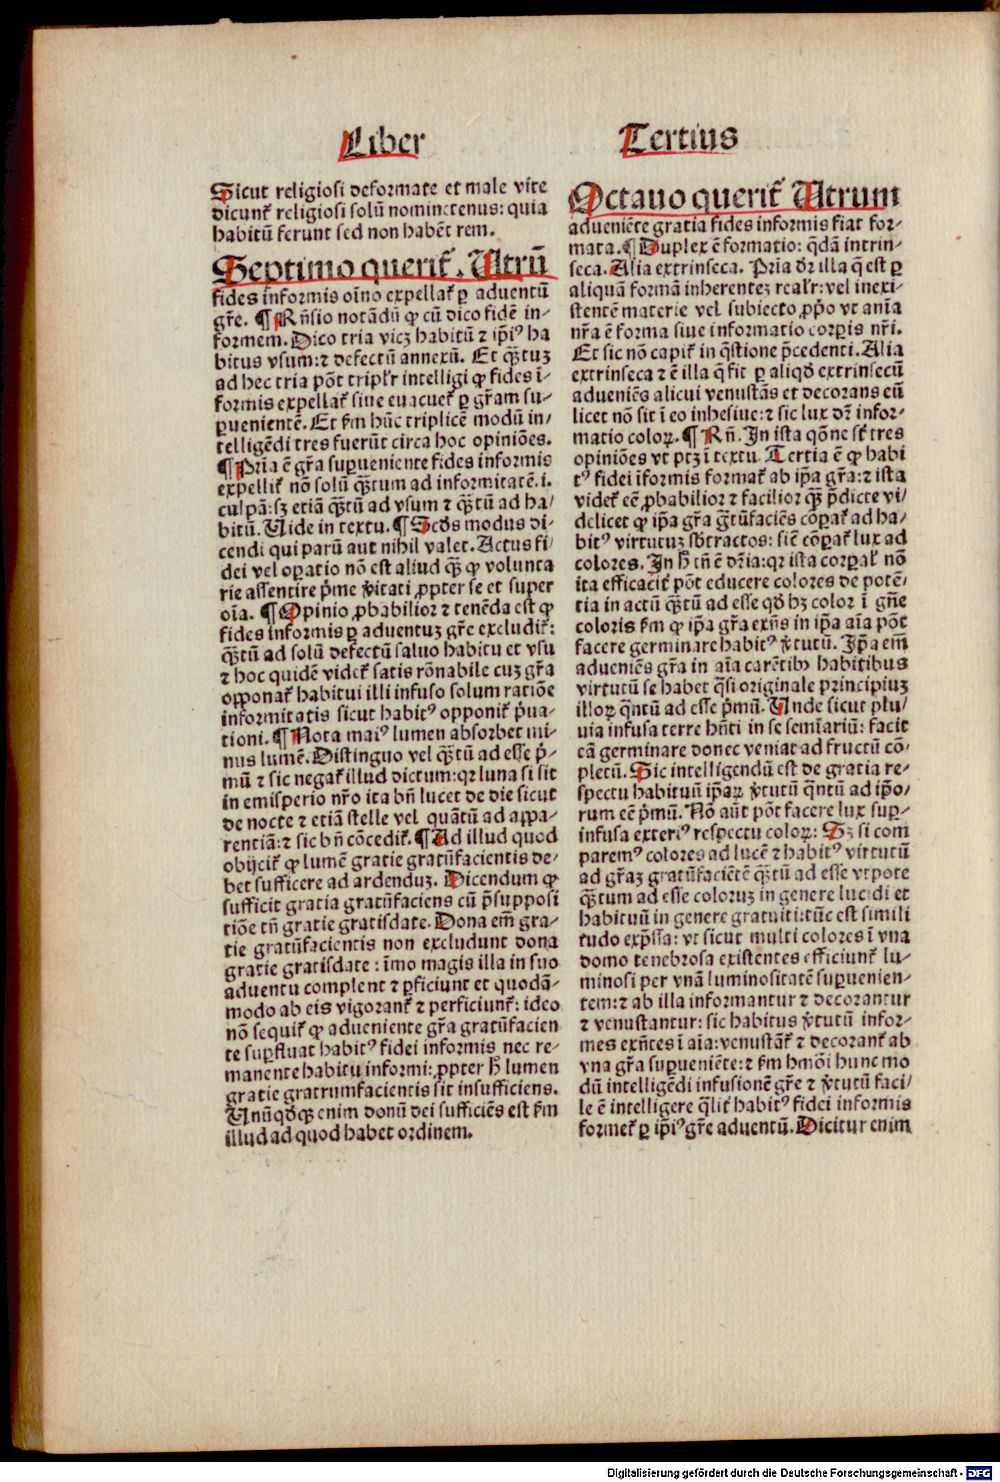 Liber
Tertius
Sicut religiosi deformate et male vite
dicunt᷑ religiosi solū nominetenus: quia
habitū ferunt sed non habēt rem.
Septimo querit᷑. Utrū
fides informis oīno expellat᷑ ꝑ aduentū
gr̄e. ¶ Rn̄sio notādū ꝙ cū dico fidē in-
formem. Dico tria vicꝫ habitū ⁊ ip̄iꝰ ha
bitus vsum: ⁊ defectū annexū. Et qꝫ̄tuꝫ
ad hec tria pōt tripl’r intelligi ꝙ fides ī-
formis expellat᷑ siue euacuet᷑ ꝑ gr̄am su-
ꝑuenientē. Et ẜm hūc triplicē modū in/
telligēdi tres fuerūt circa hoc opiniōes.
¶ Pria ē gr̄a suꝑueniente fides informis
expellit᷑ nō solū qꝫ̄tum ad informitatē .i.
culpā: sꝫ etiā qꝫ̄tū ad vsum ⁊ qꝫ̄tū ad ha/
bitū. Uide in textu. ¶ Scds modus di-
cendi qui parū aut nihil valet. Actus fi/
dei vel oꝑatio nō est aliud qꝫ̄ ꝙ volunta
rie assentire p̄me v̄itati ꝓpter se et super
oīa. ¶ Opinio ꝓbabilior ⁊ tenēda est ꝙ
fides informis ꝑ aduentuꝫ gr̄e excludit᷑:
qꝫ̄tū ad solū defectū saluo habitu et vsu
⁊ hoc quidē videt᷑ satis rōnabile cuꝫ gr̄a
opponat᷑ habitui illi infuso solum ratiōe
informitatis sicut habitꝰ opponit᷑ p̄ua-
tioni. ¶ Nota maiꝰ lumen absorbet mi-
nus lumē. Distinguo vel qꝫ̄tū ad esse p̄-
mū ⁊ sic negat᷑ illud dictum: qr luna si sit
in emisperio nr̄o ita bn̄ lucet de die sicut
de nocte ⁊ etiā stelle vel quātū ad appa-
rentiā: ⁊ sic bn̄ cōcedit᷑. ¶ Ad illud quod
obijcit᷑ ꝙ lumē gratie gratūfacientis de-
bet sufficere ad ardenduꝫ. Dicendum ꝙ
sufficit gratia gratūfaciens cū p̄supposi
tiōe tn̄ gratie gratisdate. Dona em̄ gra-
tie gratūfacientis non excludunt dona
gratie gratisdate: īmo magis illa in suo
aduentu complent ⁊ ꝑficiunt et quodā-
modo ab eis vigorant᷑ ⁊ perficiunt᷑: ideo
nō sequit᷑ ꝙ adueniente gr̄a gratūfacien
te suꝑfluat habitꝰ fidei informis nec re-
manente habitu informi: ꝓpter h̄ lumen
gratie gratrumfacientis sit insufficiens.
Unūqdqꝫ enim donū dei sufficiēs est ẜm
illud ad quod habet ordinem.
Octauo querit᷑ Utrum
adueniēte gratia fides informis fiat for-
mata. ¶ Duplex ē formatio: q̄dā intrin-
seca. Alia extrinseca. Pria dr̄ illa q̄ est ꝑ
aliquā formā inherenteꝫ real’r: vel inexi-
stentē materie vel subiecto ꝓp̄o vt anīa
nr̄a ē forma siue informatio corꝑis nr̄i.
Et sic nō capit᷑ in q̄stione p̄cedenti. Alia
extrinseca ⁊ ē illa q̄ fit ꝑ aliqd extrinsecū
adueniēs alicui venustās et decorans eū
licet nō sit ī eo inhesiue: ⁊ sic lux dr̄ infor-
matio coloꝝ. ¶ Rn̄. In ista qōne st̄ tres
opiniōes vt ptꝫ ī textu. Tertia ē ꝙ habi
tꝰ fidei īformis format᷑ ab ip̄a gr̄a: ⁊ ista
videt᷑ eē ꝓbabilior ⁊ facilior qꝫ̄ p̄dicte vi/
delicet ꝙ ip̄a gr̄a gr̄tūfaciēs cōꝑat᷑ ad ha/
bitꝰ virtutuꝫ sb̄tractos: sic̄ cōꝑat᷑ lux ad
colores. In h̄ tn̄ ē dr̄ia: qr ista corꝑal’ nō
ita efficacit᷑ pōt educere colores de potē/
tia in actū qꝫ̄tū ad esse qd hꝫ color ī gn̄e
coloris ẜm ꝙ ip̄a gr̄a exn̄s in ip̄a aīa pōt
facere germinare habitꝰ v̄tutū. Ip̄a em̄
adueniēs gr̄a in aīa carētibꝫ habitibus
virtutū se habet q̄si originale principiuꝫ
illoꝝ q̄ntū ad esse p̄mū. Unde sicut plu/
uia infusa terre hn̄ti in se semīariū: facit
eā germinare donec veniat ad fructū cō-
pletū. Sic intelligendū est de gratia re-
spectu habituū ip̄aꝝ v̄tutū q̄ntū ad ip̄o/
rum eē p̄mū. Nō aūt pōt facere lux suꝑ-
infusa exteriꝰ respectu coloꝝ: Sꝫ si com
paremꝰ colores ad lucē ⁊ habitꝰ virtutū
ad gr̄aꝫ gratūfaciētē qꝫ̄tū ad esse vtpote
qꝫ̄tum ad esse coloruꝫ in genere lucidi et
habituū in genere gratuiti: tūc est simili
tudo exp̄ssa: vt sicut multi colores ī vna
domo tenebrosa existentes efficiunt᷑ lu-
minosi per vnā luminositatē suꝑuenien-
tem: ⁊ ab illa informantur ⁊ decorantur
⁊ venustantur: sic habitus v̄tutū infor-
mes exn̄tes ī aīa: venustāt᷑ ⁊ decorant᷑ ab
vna gr̄a suꝑueniēte: ⁊ ẜm hmōi hunc mo
dū intelligēdi infusionē gr̄e ⁊ v̄tutū faci/
le ē intelligere q̄lit᷑ habitꝰ fidei informis
formet᷑ ꝑ ip̄iꝰ gr̄e aduentū. Dicitur enim
Digitalisierung gefördert durch die Deutsche Forschungsgemeinschaft - DFG